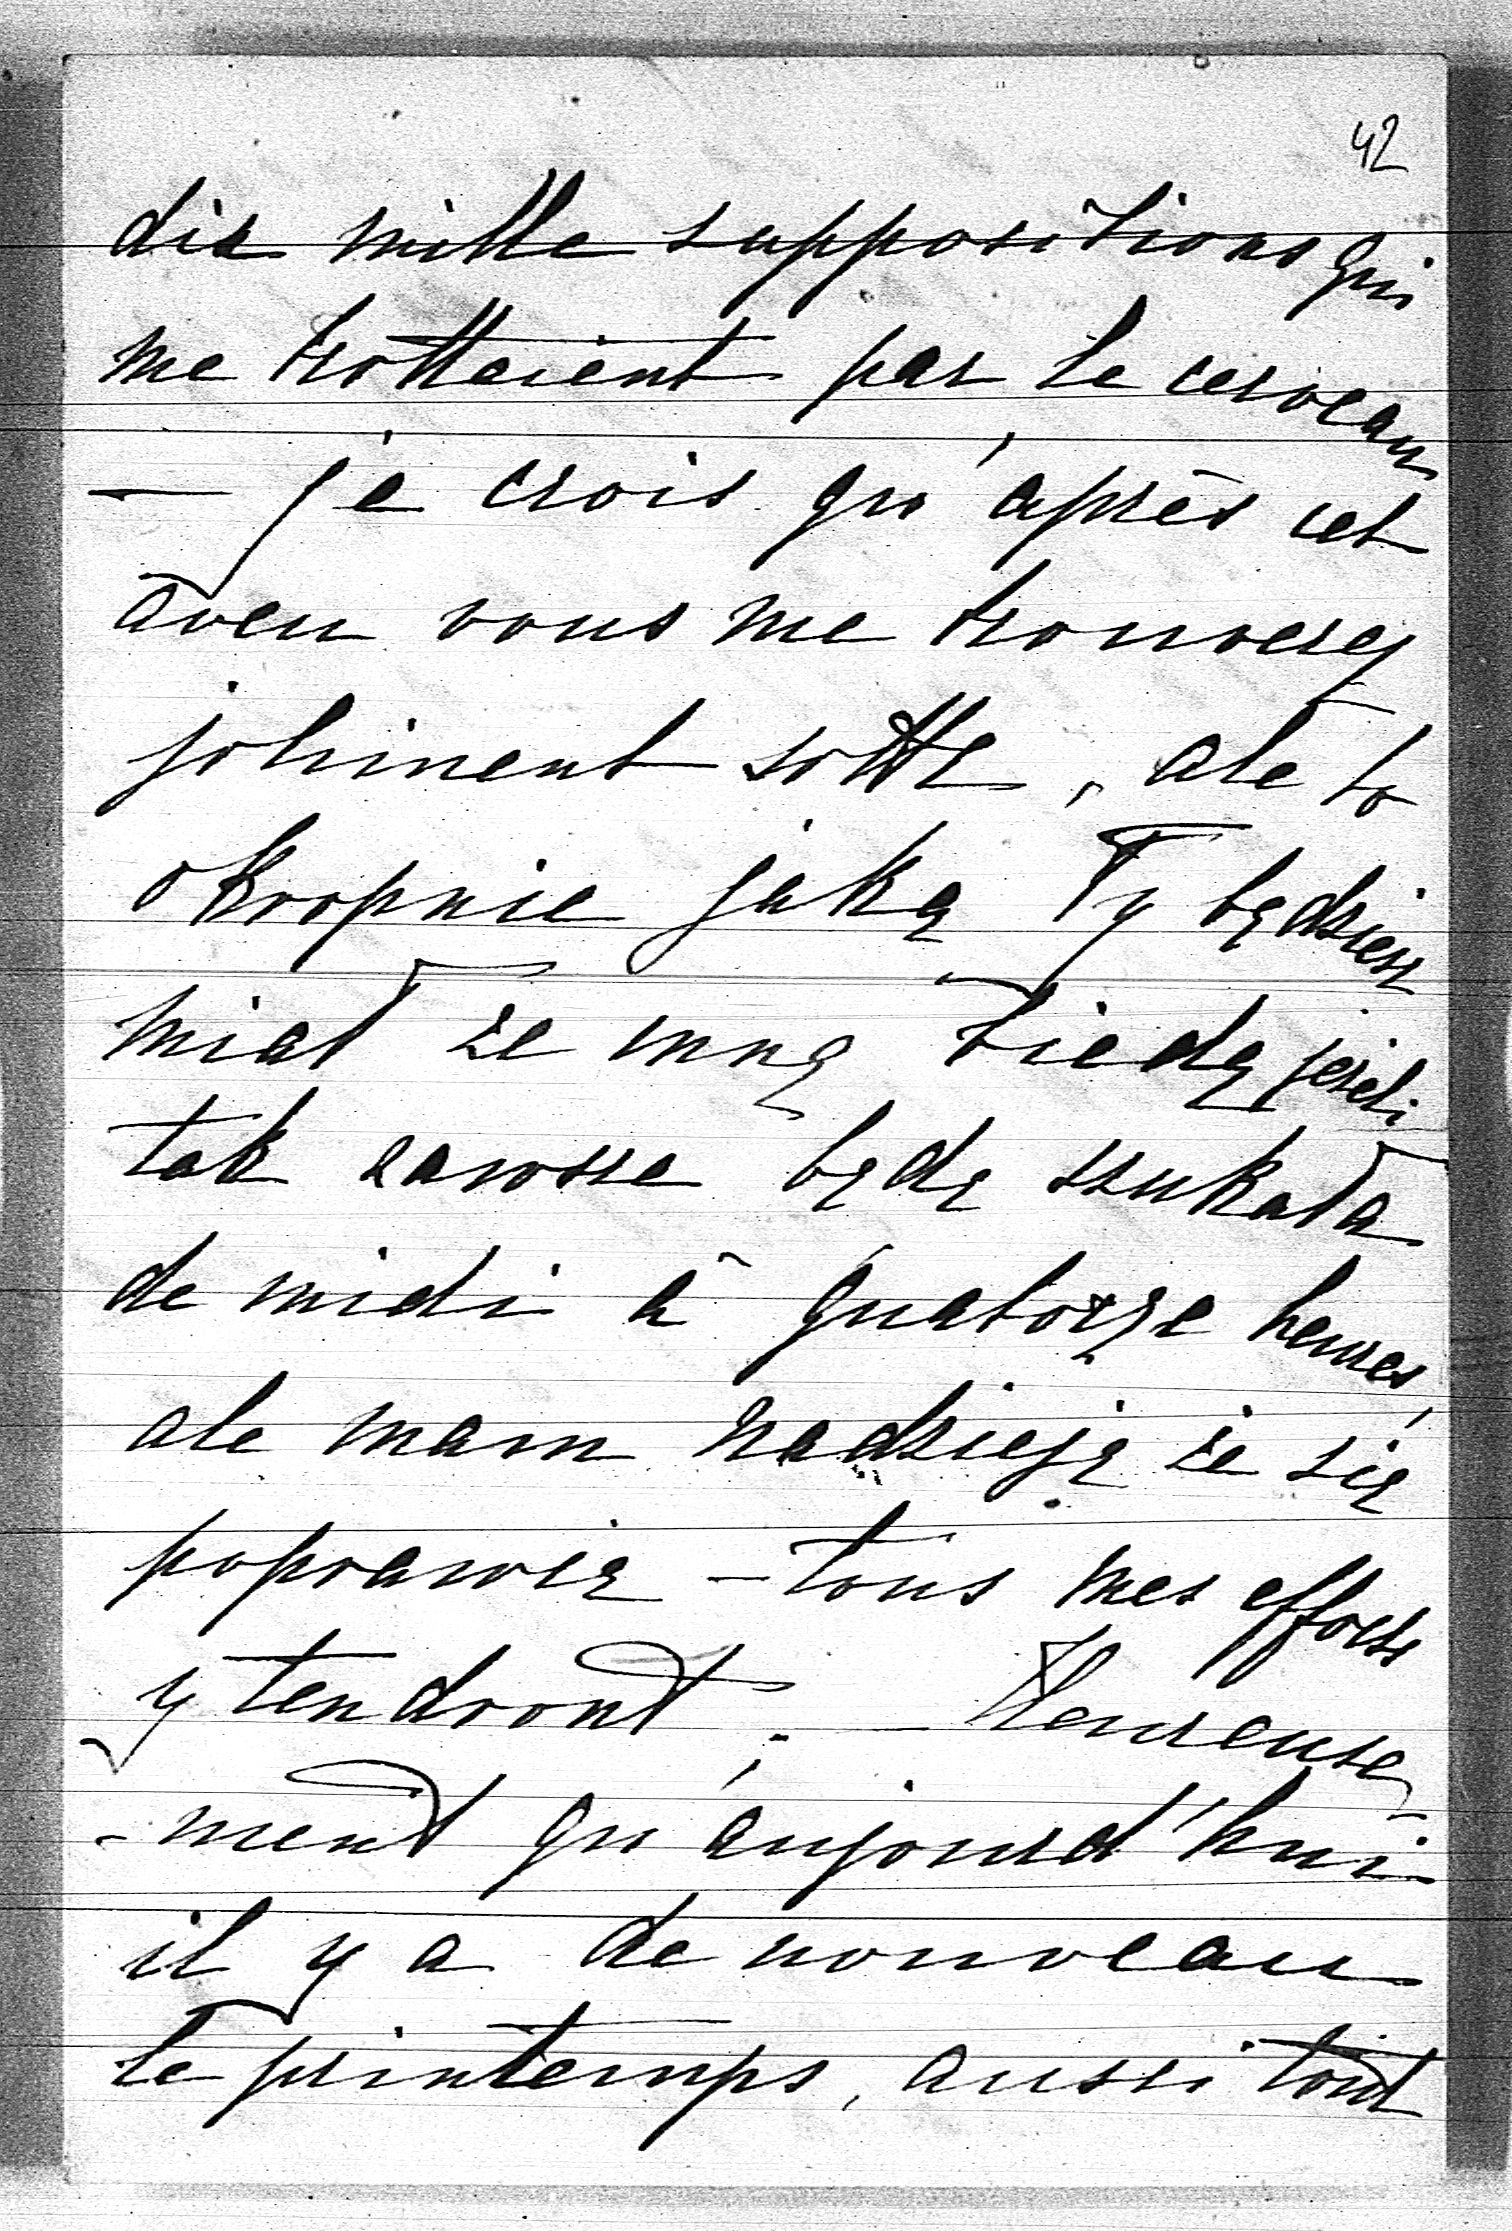 42
dix mille suppositions qui
me trottaient par le cerveau
— je crois qu'après cet
aveu vous me trouverez
joliment sotte, ale to
okropnie jaką Ty będziesz
miał ze mną biedę jeżeli
tak zawsze będę szukała
de midi à quatorze heures,
ale mam nadzieję że się
poprawię – tous mes efforts
y tendront; – Heureuse
-ment qu'aujourd'hui
il y a de nouveau
le printemps, aussi tout